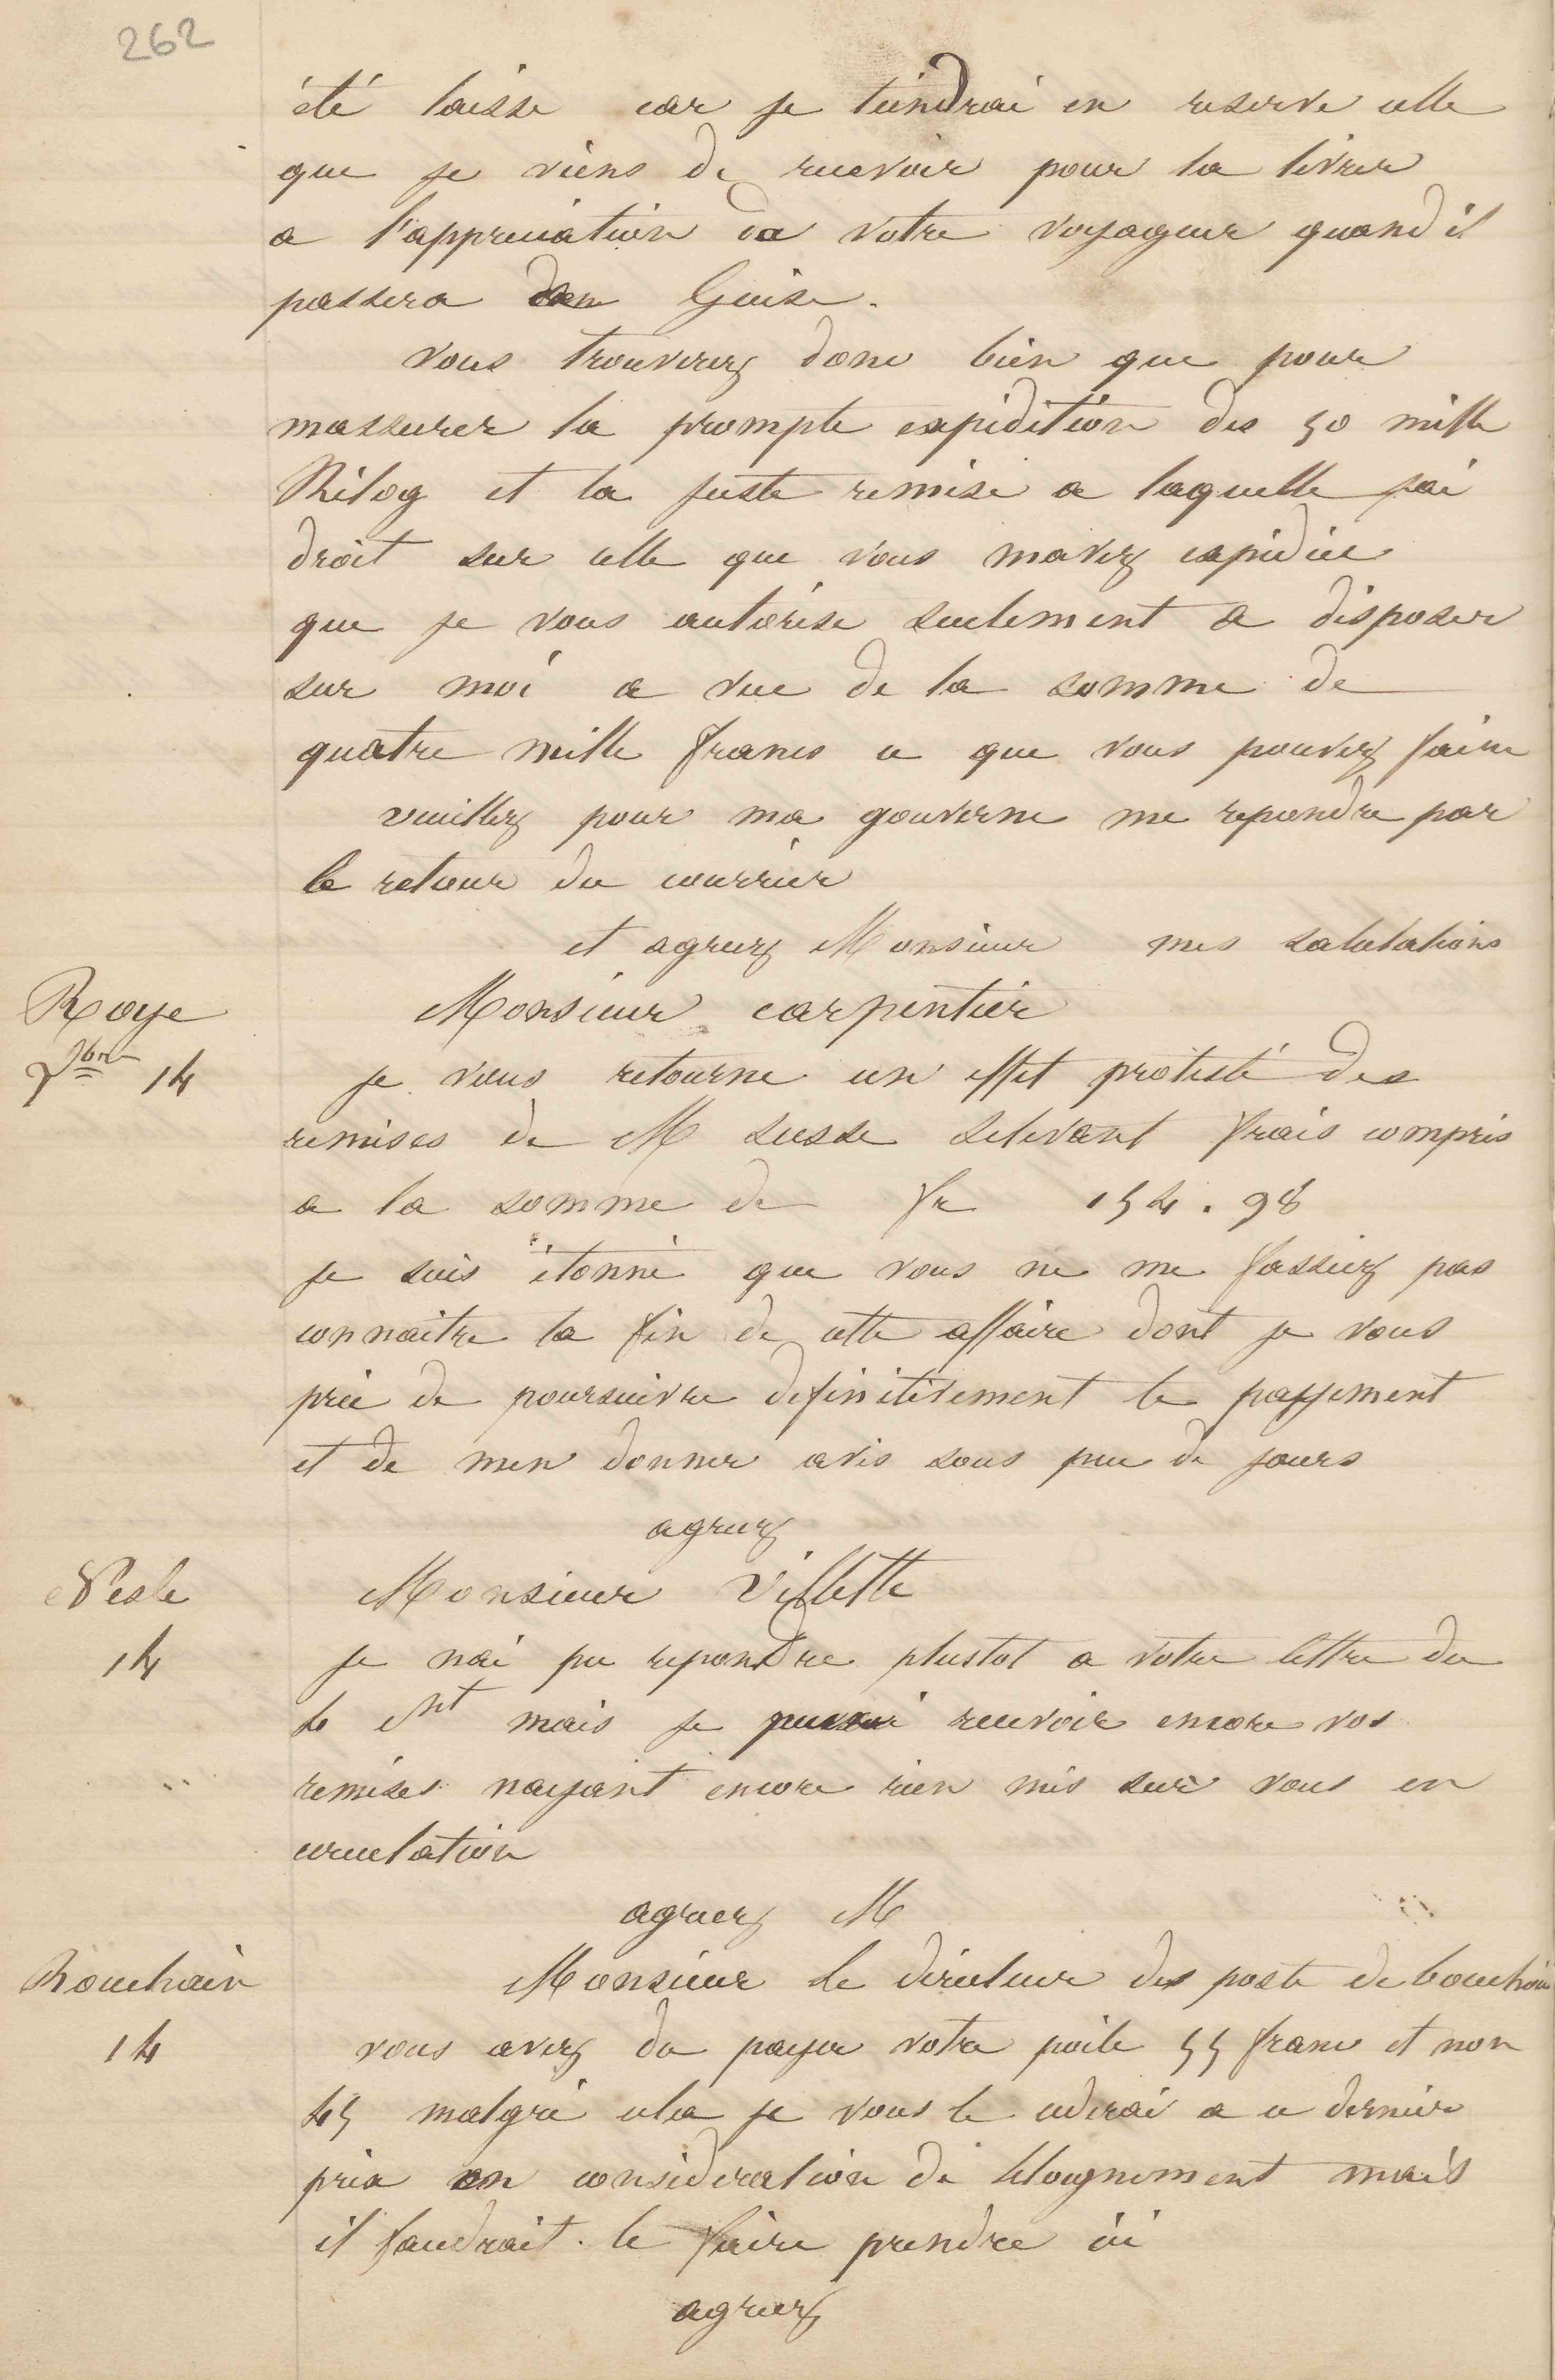 262
été laisse car je tiendrai en reserve celle
que je viens de recevoir pour la livrer
a l'appreciation de votre voyageur quand il
passera a Guise.
vous trouverez donc bien que pour
massurer la prompte expidition des 50 mille
Kilog et la juste remise a laquelle jai
droit sur celle que vous mavez expidiee
que je vous autorise seulement a disposer
sur moi a vue de la somme de
quatre mille francs ce que vous pouvez faire
veuillez pour ma gouverne me repondre par
le retour du courrier
et agreez Monsieur mes salutations
Roye
Monsieur carpentier
9bre 14
je vous retourne un effet protesté des
remises de M susse selevant frais compris
a la somme de fr 154.98
je suis étonné que vous ne me fassiez pas
connaitre la fin de cette affaire dont je vous
prie de poursuivre definitivement le payement
et de men donner avis sous peu de jours
agreez
Nesle
Monsieur Villette
14
je nai pu repondre plustot a votre lettre du
4 Ct mais je recevoir encore vos
remises nayant encore rien mis sur vous en
circulation
agreez M
Bouchain
Monsieur le directeur des poste de bouchain
14
vous avez du payer votre poile 55 franc et non
45 malgré cela je vous le cederai a ce dernier
prix en consideration de leloignement mais
il faudrait le faire prendre ici
agreez